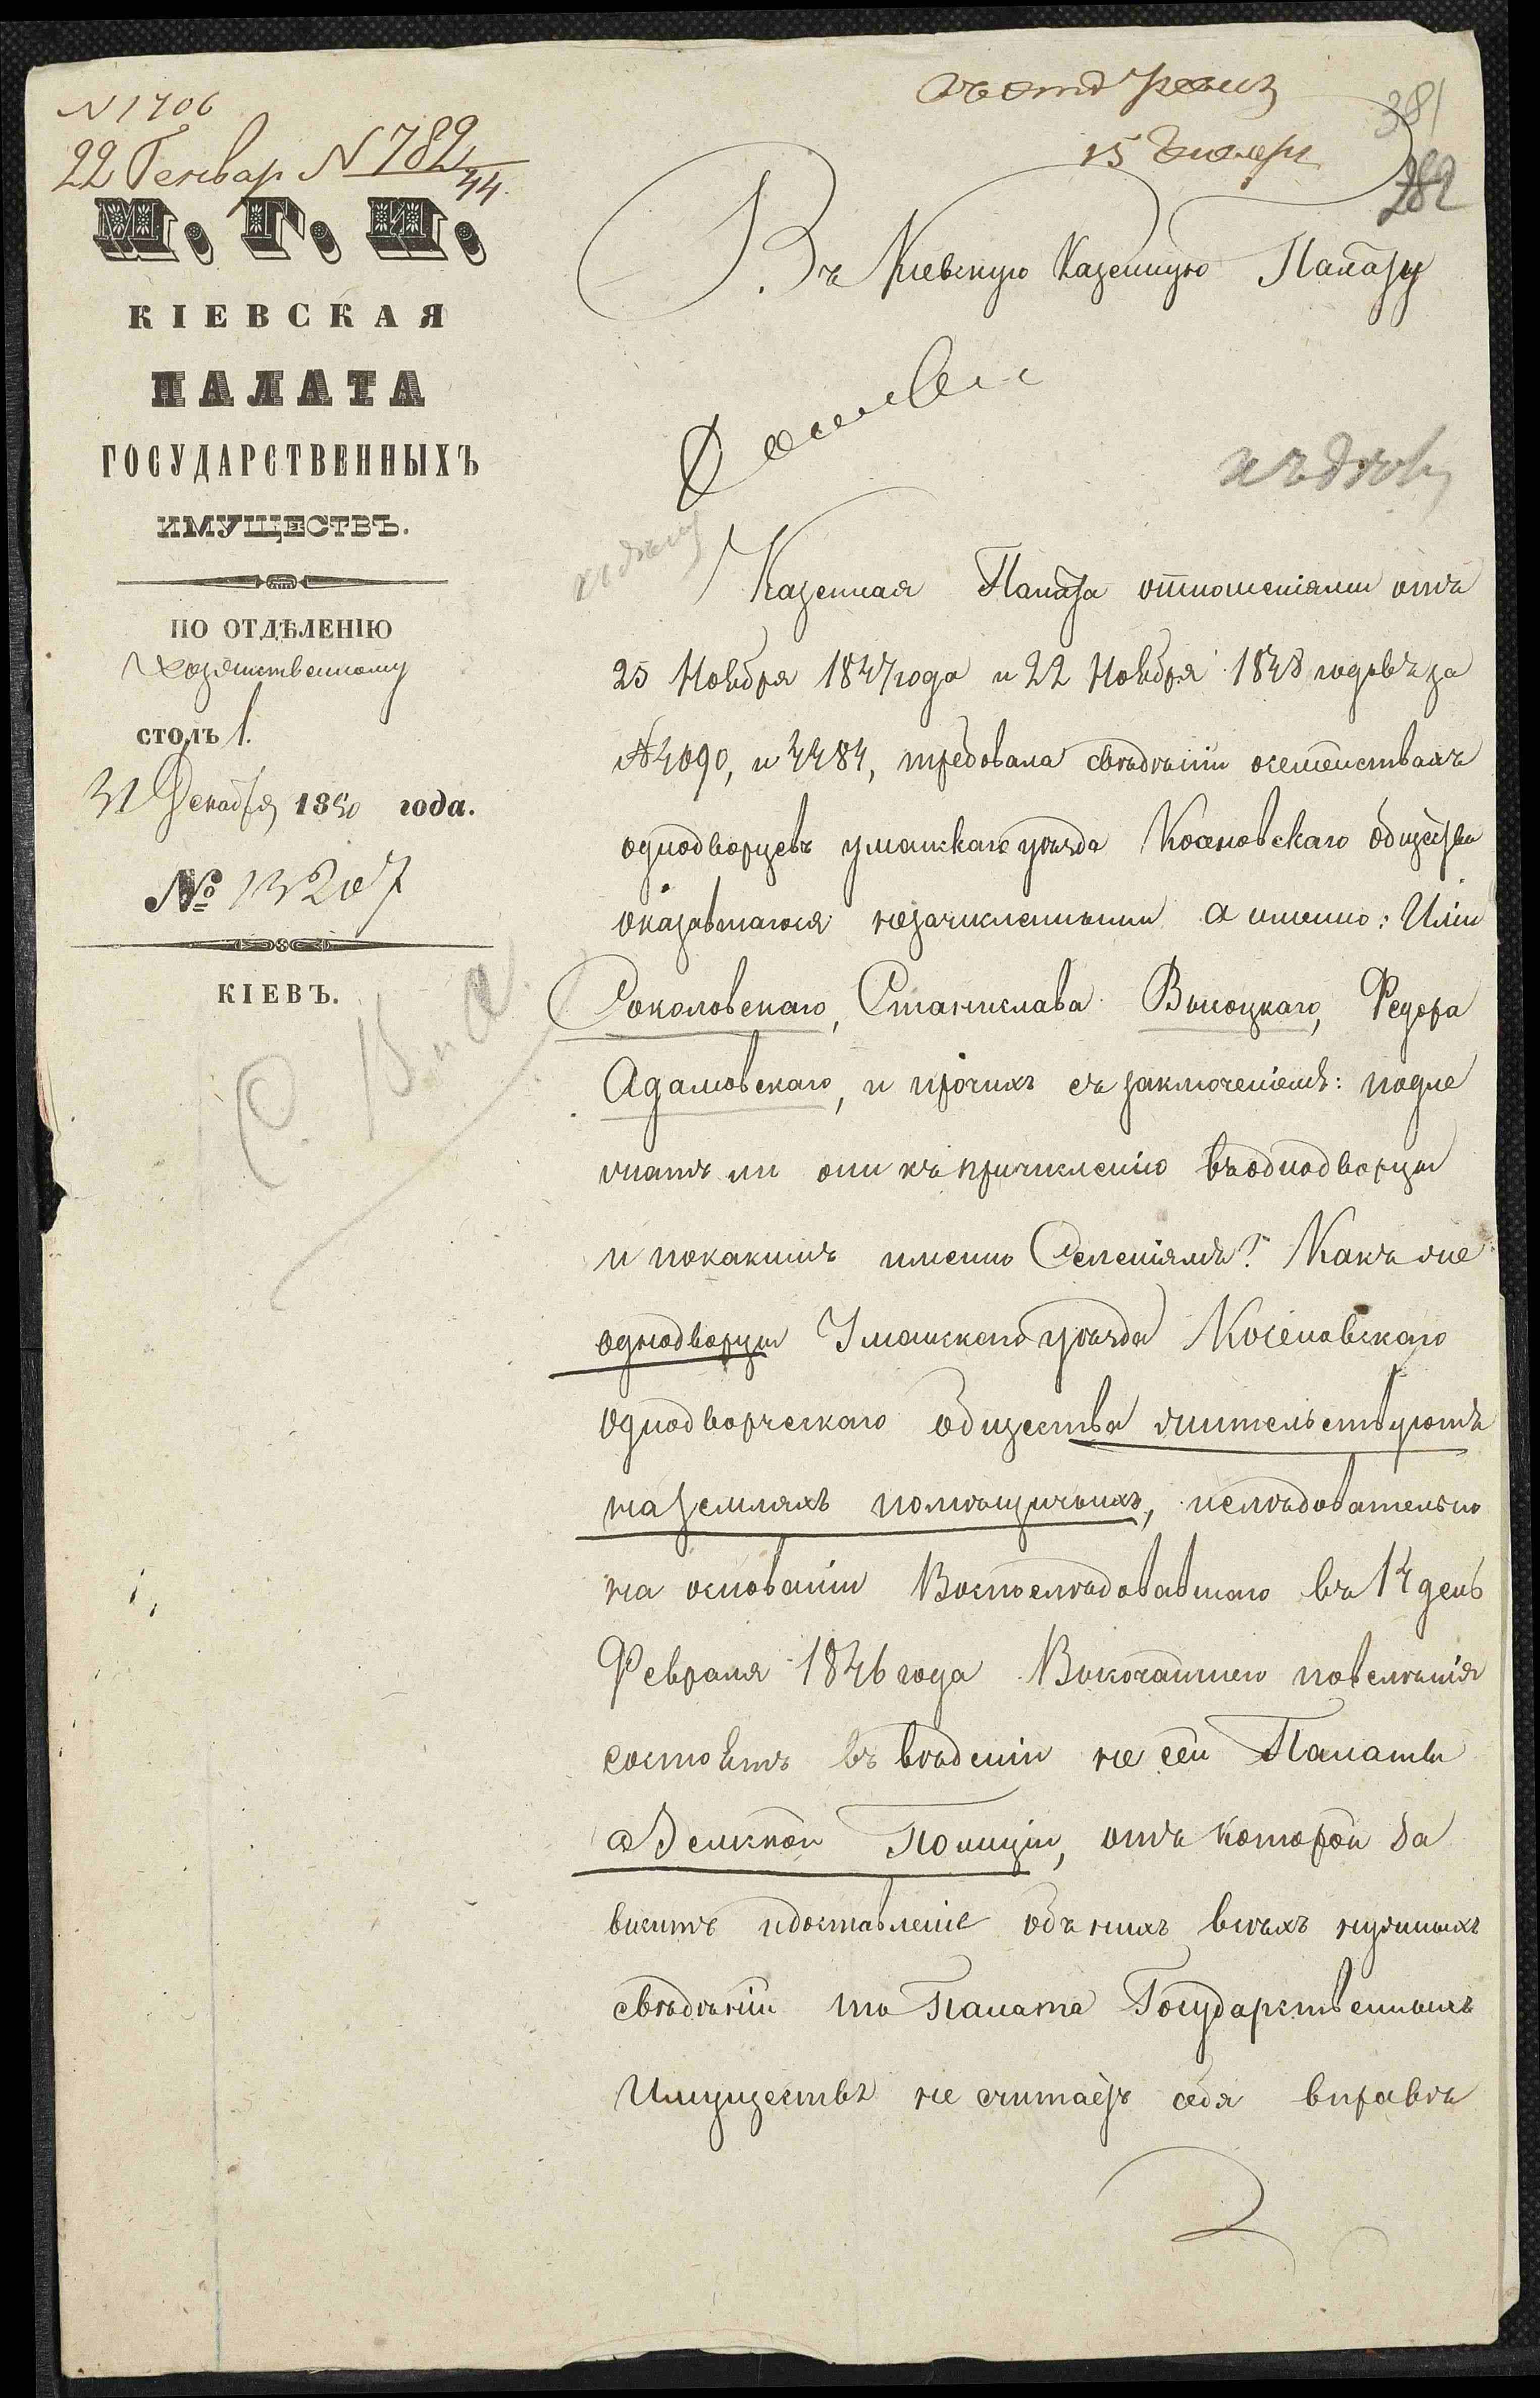 N 1706
22 Генвар N 782/44
15 Генваря
381
282
М. Г. И.
КІЕВСКАЯ
ПАЛАТА
ГОСУДАРСТВЕННЫХЪ
ИМУЩЕСТВЪ.
ПО ОТДѢЛЕНІЮ
Хозяйственному
СТОЛЪ 1.
31 Декабря 1850 года.
№ 13207
КІЕВЪ.
Въ Кіевскую Казенную Палату
къ дѣлу
къ дѣлу
Казенная Палата отношеніями отъ
25 Ноября 1847 года и 22 Ноября 1848 годовъ за
№ 4090, и 4484, требовала свѣдѣній осемействахъ
однодворцевъ уманскаго уѣзда Косеновскаго общества
оказавшагося незачисленными а именно: Иліи
Соколовскаго, Станислава Высоцкаго, Федора
Адамовскаго, и прочихъ съ заключеніемъ: подле
жатъ ли они къ причисленію въоднодворцы
и покакимъ именно Селеніямъ? Какъ же
однодворцы Уманскаго уѣзда Косеновскаго
однодворческаго общества жительствуютъ
на земляхъ помѣщичьихъ, ислѣдовательно
на основаніи Воспослѣдовавшаго въ 14 день
Февраля 1846 года Высочайшаго повелѣнія
состоятъ въ вѣденіи не сей Палаты
а Земской Полиціи, отъ которой за
виситъ идоставленіе объ нихъ всѣхъ нужныхъ
свѣдѣній то Палата Государственныхъ
Имуществъ не считаетъ себя вправѣ